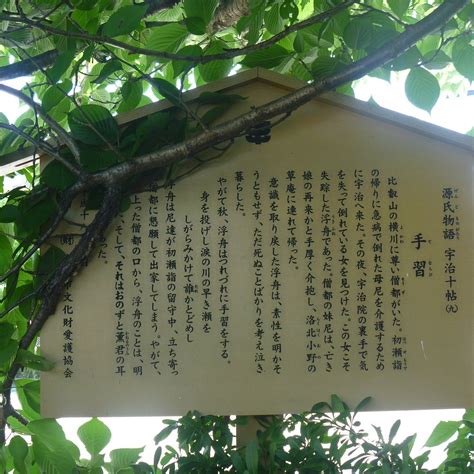 源氏物語 宇治十帖 (九)
手習
てならい
比叡山の横川に尊い僧都がいた。初瀬詣
の帰りに急病で倒れた母尼を介護するため
に宇治へ来た。その夜、宇治院の裏手で気
を失って倒れている女を見つけた。この女こそ
失踪した浮舟であった。僧都の妹尼は、亡き
娘の再来かと手厚く介抱し、洛北小野の
草庵に連れて帰った。
意識を取り戻した浮舟は、素性を明かそ
うともせず、ただ死ぬことばかりを考え泣き
暮らした。
やがて秋、浮舟はつれづれに手習をする。
身を投げし涙の川の早き瀬を
しがらみかけて誰かとどめし
浮舟は尼達が初瀬詣の留守中、立ち寄っ
都に懇願して出家してしまう。やがて、
上った僧都の口から、浮舟のことは、明
、そして、それはおのずと薫君の耳
った。
文化財愛護協会